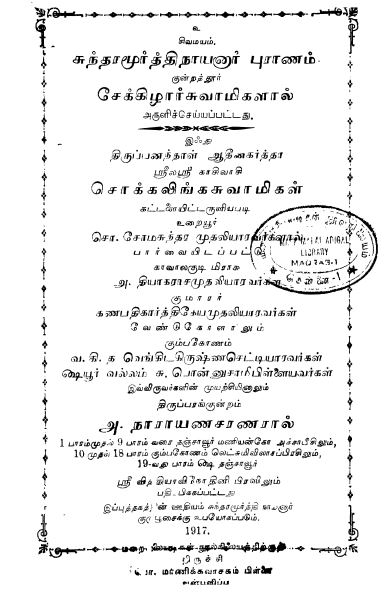 உ
சிவமயம்.
சுந்தரமூர்த்திநாயனார் புராணம்.
குன்றத்தூர்
சேக்கிழார்சுவாமிகளால்
அருளிச்செய்யப்பட்டது.
இஃது
திருப்பனந்தாள் ஆதீனகர்த்தா
ஸ்ரீலஸ்ரீ காசிவாசி
சொக்கலிங்கசுவாமிகள்
கட்டளையிட்டருளியபடி
உறையூர்
சொ. சோமசுந்தர முதலியாரவர்களால்
பார்வையிடப்பட்டு
காவாலகுடி மிராசு
அ. தியாகராசமுதலியாரவர்கள்
குமாரர்
கணபதிகார்த்திகேயமுதலியாரவர்கள்
வேண்டுகோளாலும்
கும்பகோணம்
வ. கி. த வெங்கிடகிருஷ்ணசெட்டியாரவர்கள்
ஷையூர் வல்லம் சு. பொன்னுசாமிபிள்ளையவர்கள்
இவ்விருவர்களின் முயற்சியினாலும்
திருப்பரங்குன்றம்
அ. நாராயணசரணரால்
1 பாரம்முதல் 9 பாரம் வரை தஞ்சாவூர் மணியன்கோ அச்சாபீசிலும்,
10 முதல் 18 பாரம் கும்பகோணம் லெட்சுமிவிலாசப்பிரசிலும்,
19-வது பாரம் ஷை தஞ்சாவூர்
ஸ்ரீ வித்தியாவிநோதினி பிரஸிலும்
பதிப்பிக்கப்பட்டது
இப்புத்தகத்தின் ஊதியம் சுந்தரமூர்த்தி நாயனார்
குருபூசைக்கு உபயோகப்படும்.
1917.
திருச்சி
மாணிக்கவாசகம் பிள்ளை
அன்பளிப்பு
ADIGAL
LIBRARY
MADRAS-1
சென்னை-1